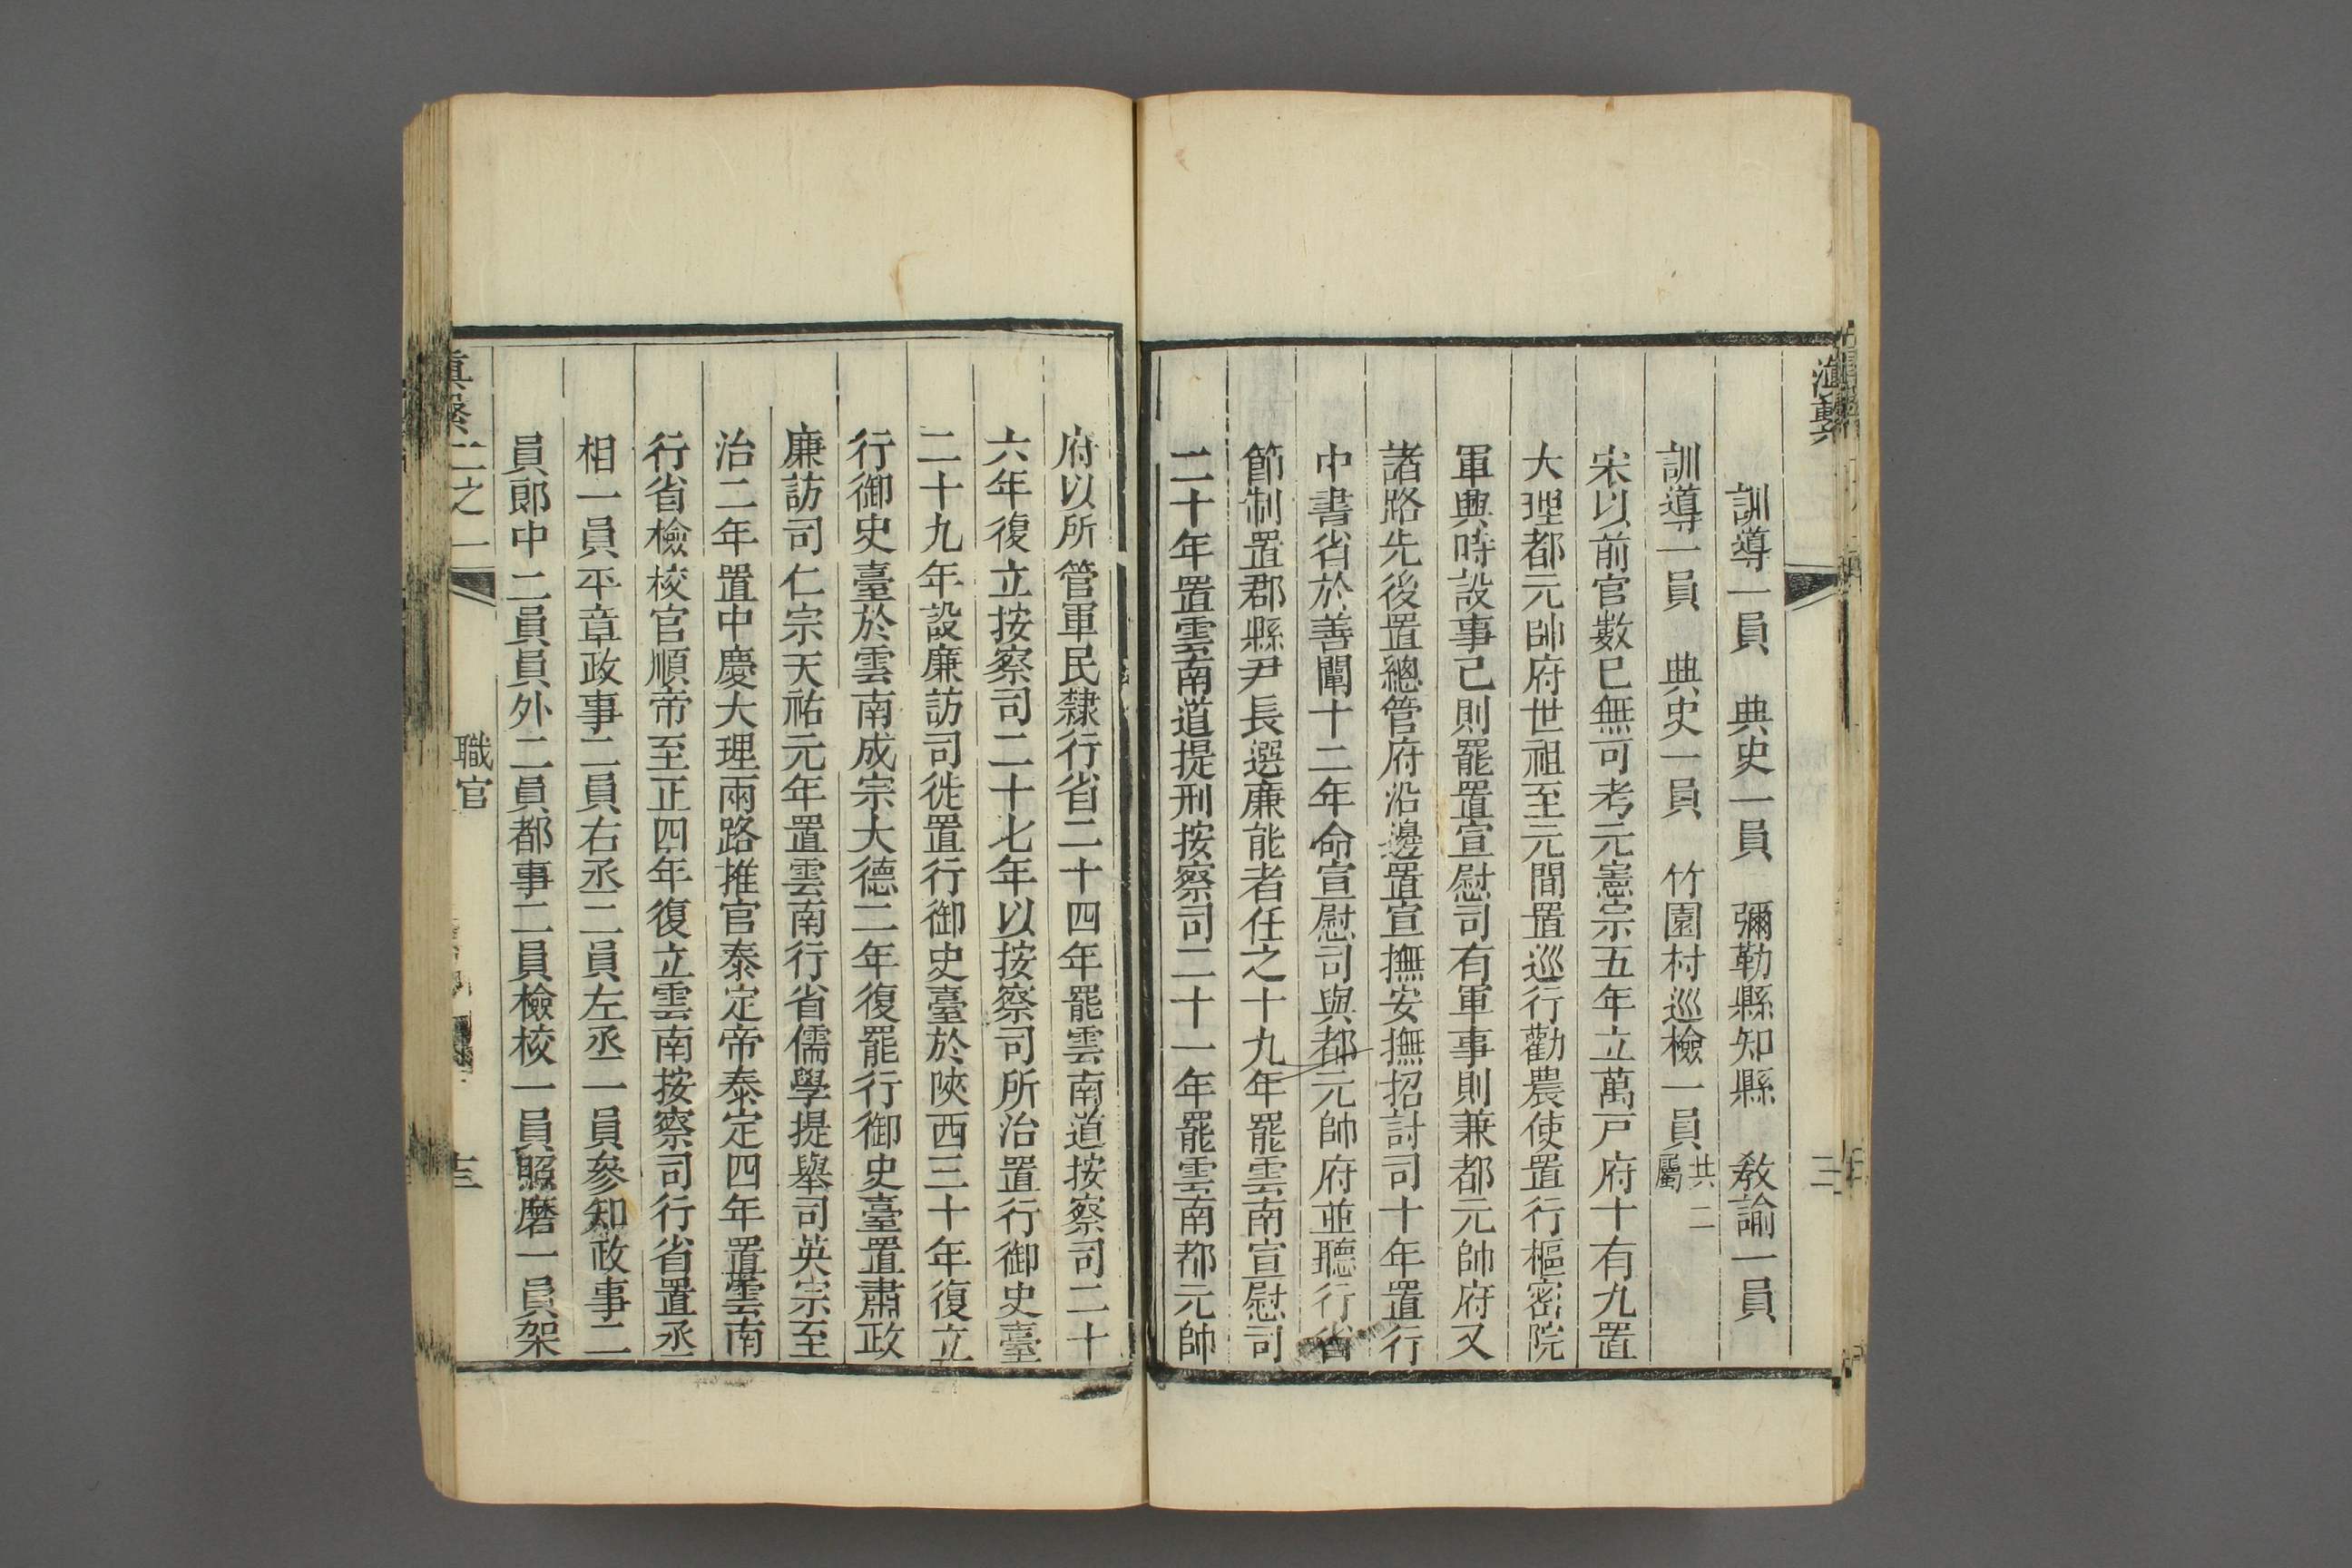 滇繫
訓導一員　典史一員　彌勒縣知縣　教諭一員
訓導一員　典史一員　竹園村巡檢一員共二屬
宋以前官數已無可考元憲宗五年立萬戸府十有九置
大理都元帥府世祖至元間置巡行勸農使置行樞密院
軍興時設事已則罷置宣慰司有軍事則兼都元帥府又
諸路先後置總管府沿邊置宣撫安撫招討司十年置行
中書省於善闡十二年命宣慰司與都元帥府並聽行省
節制置郡縣尹長選廉能者任之十九年罷雲南宣慰司
二十年置雲南道提刑按察司二十一年罷雲南都元帥
府以所管軍民隸行省二十四年罷雲南道按察司二十
六年復立按察司二十七年以按察司所治置行御史臺
二十九年設廉訪司徙置行御史臺於陝西三十年復立
行御史臺於雲南成宗大德二年復罷行御史臺置肅政
廉訪司仁宗天祐元年置雲南行省儒學提舉司英宗至
治二年置中慶大理兩路推官泰定帝泰定四年置雲南
行省檢校官順帝至正四年復立雲南按察司行省置丞
相一員平章政事二員右丞二員左丞一員參知政事二
員郎中二員員外二員都事二員檢校一員照磨一員架
二之一
職官